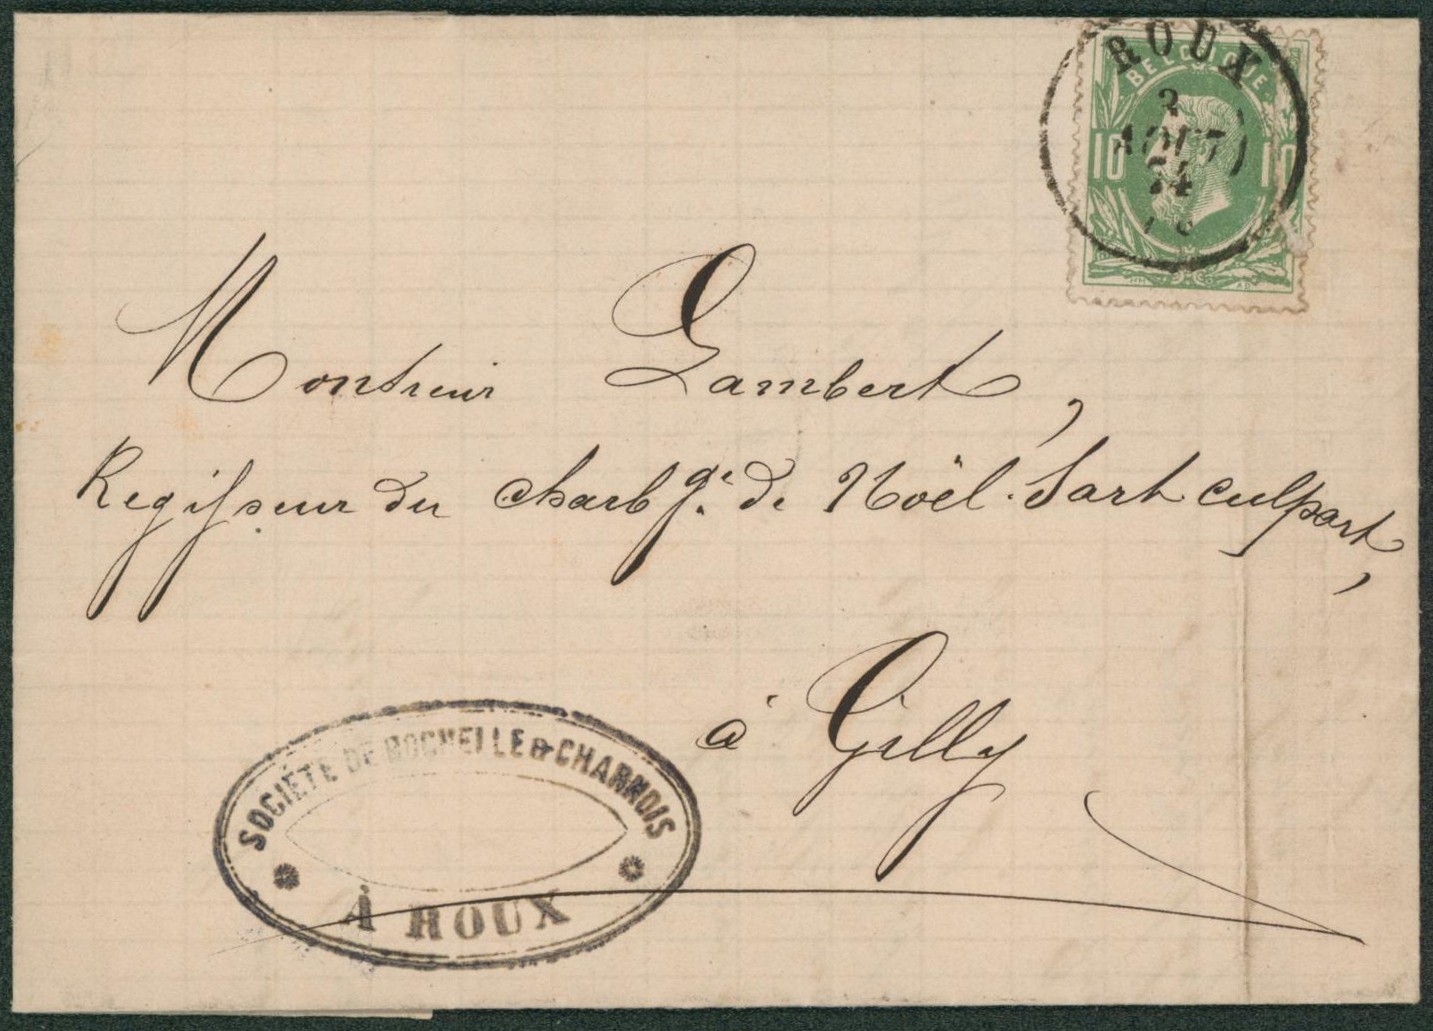 ROUX
BELGIQUE
3
AOUT
10 10
74
Monsieur Lambert,
Regisseur du charb.ge de Noël-Sart culpart,
à Gilly
SOCIÉTÉ DE ROCHELLE & CHARNOIS
À ROUX